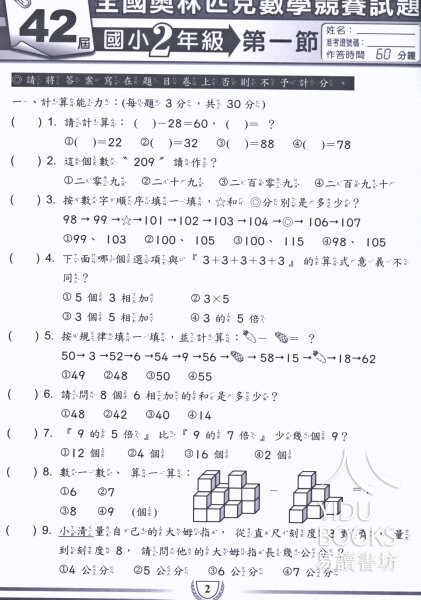 42屆
全國奧林匹克數學競賽試題
國小2年級 第一節
姓名:
准考證號碼:
作答時間 60 分鐘
◎請將答案寫在題目卷上否則不予計分。
一、計算能力:(每題 3 分,共 30 分)
( ) 1. 請計算:( )-28=60, ( )= ?
①( )=22 ②( )=32 ③( )=88 ④( )=78
( ) 2. 這個數〝 209〞讀作?
①二零九 ②二十九 ③二百零九 ④二百九十
( ) 3. 按數字順序填一填,☆和◎分別是多少?
98→99→☆→101→102→103→104→◎→106→107
①99、 103 ②100、 105 ③100、 115 ④98、 105
( ) 4. 下面哪個選項與『 3+3+3+3+3 』的算式意義不
同?
①5 個 3 相加 ②3×5
③3 個 5 相加 ④3 的 5 倍
( ) 5. 按規律填一填,並計算: - = ?
50→3→52→6→54→9→56→ →58→15→ →18→62
①49 ②48 ③50 ④55
( ) 6. 請問 8 個 6 相加的和是多少?
①48 ②42 ③40 ④14
( ) 7. 『 9 的 5 倍 』比『 9 的 7 倍 』少幾個 9?
①12 個 ②4 個 ③16 個 ④2 個
( ) 8. 數一數、 算一算: - =?
①6 ②7
③8 ④9 (個)
( ) 9. 小清量自己的大姆指, 從直尺刻度 3 對齊,量
到刻度 8, 請問他的大姆指長幾公分?
①4 公分 ②5 公分 ③6 公分 ④7 公分
2
YIDU
BOOKS
易讀書坊